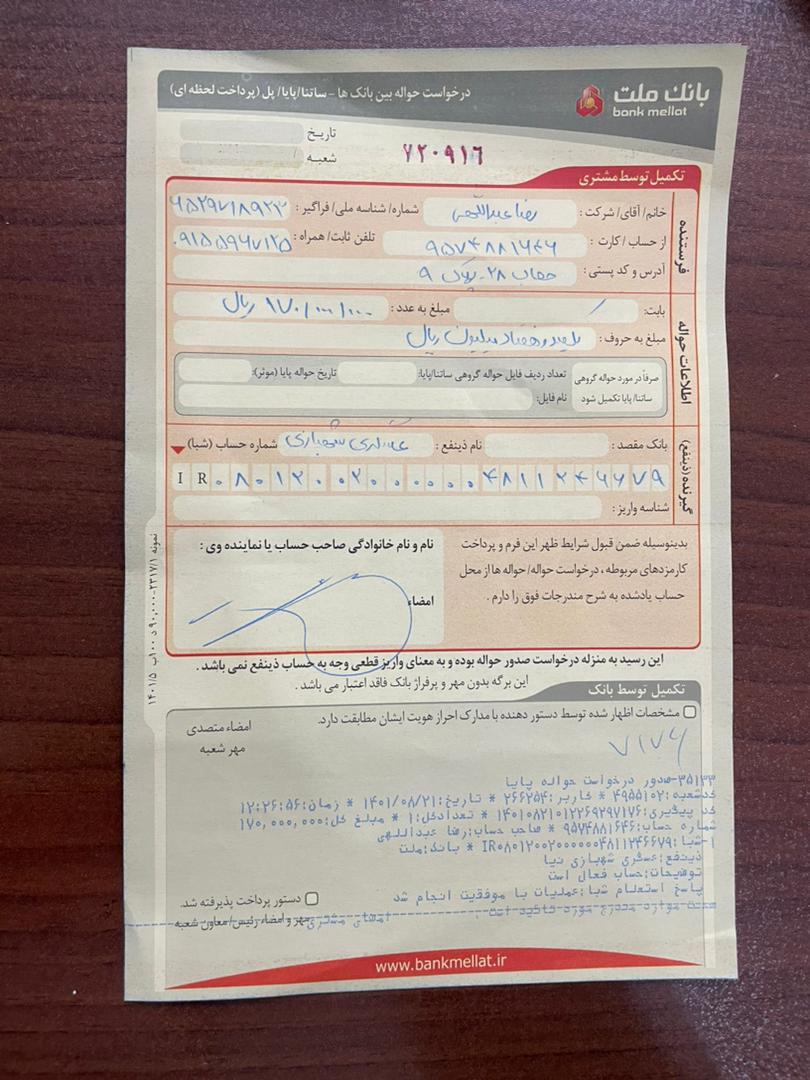 بانک ملت
bank mellat
درخواست حواله بین بانک ها - ساتنا/پایا/ پل (پرداخت لحظه ای)
تاریخ
شعبه /
۷۲۰۹۱۶
تکمیل توسط مشتری
فرستنده
خانم/ آقای/ شرکت: رضا عبداللهی شماره/ شناسه ملی/ فراگیر:
از حساب / کارت: ۹۵۷۴۸۸۱۶۴۶ تلفن ثابت/ همراه:
آدرس و کد پستی: ۲۸- پلاک ۹
اطلاعات حواله
بابت: مبلغ به عدد: ۱۷۰/۰۰۰/۰۰۰ ریال
مبلغ به حروف: یکصد و هفتاد میلیون ریال
صرفاً در مورد حواله گروهی ساتنا/ پایا تکمیل شود
تعداد ردیف فایل حواله گروهی ساتنا/پایا: تاریخ حواله پایا (موثر):
نام فایل:
گیرنده (ذینفع)
بانک مقصد: نام ذینفع: عسگری شهبازی شماره حساب (شبا)
IR۰۸۰۱۲۰۰۲۰۰۰۰۰۰۴۸۱۱۲۴۶۶۷۹
شناسه واریز:
بدینوسیله ضمن قبول شرایط ظهر این فرم و پرداخت
کارمزدهای مربوطه، درخواست حواله/ حواله ها از محل
حساب یادشده به شرح مندرجات فوق را دارم.
نام و نام خانوادگی صاحب حساب یا نماینده وی:
امضاء
این رسید به منزله درخواست صدور حواله بوده و به معنای واریز قطعی وجه به حساب ذینفع نمی باشد.
این برگه بدون مهر و پرفراژ بانک فاقد اعتبار می باشد.
نمونه ۲۳۱۷/۱-۹۰,۰۰۰ د ۱۰۰ ب ۱۴۰۱/۵
تکمیل توسط بانک
مشخصات اظهار شده توسط دستور دهنده با مدارک احراز هویت ایشان مطابقت دارد.
امضاء متصدی
مهر شعبه
۷۱۷۶
۳۵۱۳۳-صدور درخواست حواله پایا
کدشعبه:۴۹۵۵۱۰۲ * کاربر:۲۶۶۲۵۴ * تاریخ:۱۴۰۱/۰۸/۲۱ * زمان:۱۲:۲۶:۵۶
کد پیگیری:۱۴۰۱۰۸۲۱۰۱۲۲۶۹۲۹۷۱۷۶ * تعدادکل:۱ * مبلغ کل:۱۷۰,۰۰۰,۰۰۰
شماره حساب:۹۵۷۴۸۸۱۶۴۶ * صاحب حساب:رضا عبداللهی
۱-شبا:IR۰۸۰۱۲۰۰۲۰۰۰۰۰۰۴۸۱۱۲۴۶۶۷۹ * بانک:ملت
ذینفع:عسگری شهبازی نیا
توضیحات:حساب فعال است
پاسخ استعلام شبا:عملیات با موفقیت انجام شد
دستور پرداخت پذیرفته شد.
مهر و امضاء رئیس/ معاون شعبه
امضای مشتری
www.bankmellat.ir